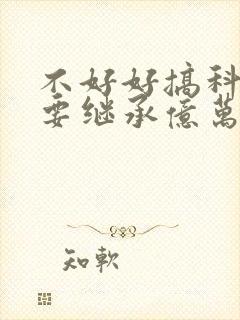 不好好搞科
要继承億萬
知軟